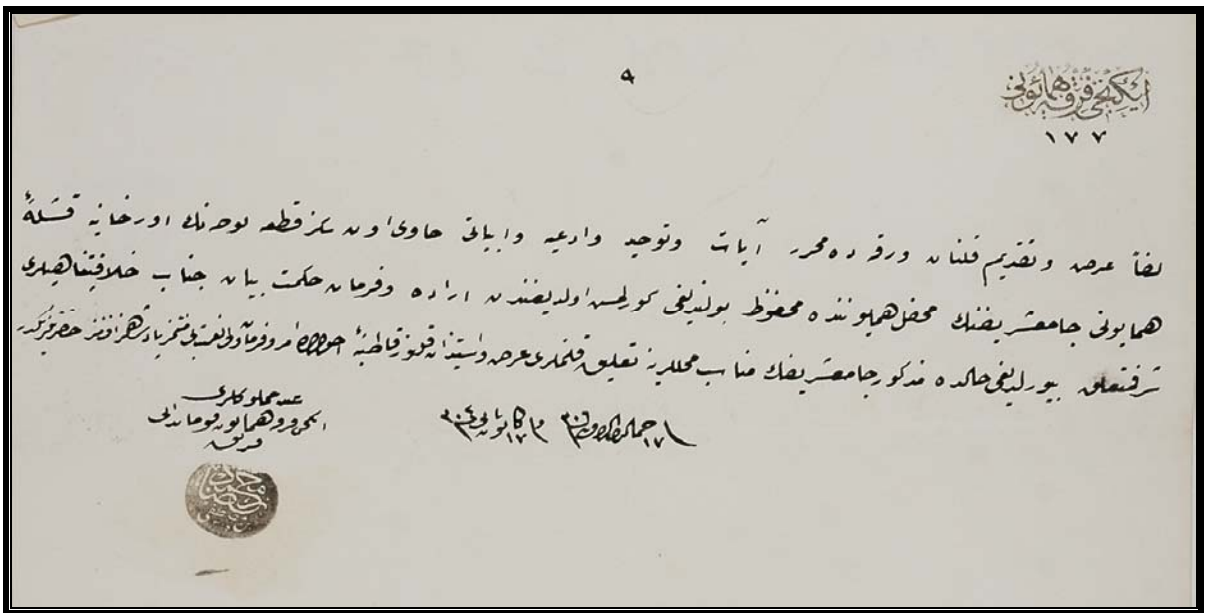 ٩
ايكنجى فرقۀ همايونى
١٧٧
لفاً عرض وتقديم قلنان ورقه ده محرر آيات وتوحيد وادعيه وابياتى حاوى اون سكز قطعه لوحه نك اورخانيه قشلۀ
همايونى جامعشريفنك محفل همايوننده محفوظ بولنديغى كورلمش اولديغندن اراده وفرمان حكمت بيان جناب خلافتپناهيلرى
شرفتعلق بيورلديغى حالده مذكور جامعشريفك مناسب محللرينه تعليق قلنملرى عرض واستيذان قلنور قاطبۀ احوالده امر وفرمان ولى نعمت بى منتمز پادشاهمز افندمز حضرتلرينكدر
١٧ جمادى الاولى ٣٠٦ ١٧ كانون ثانى ٣٠٤
عبد مملوكلرى
ايكنجى فرقه همايون قوماندانى
فريق